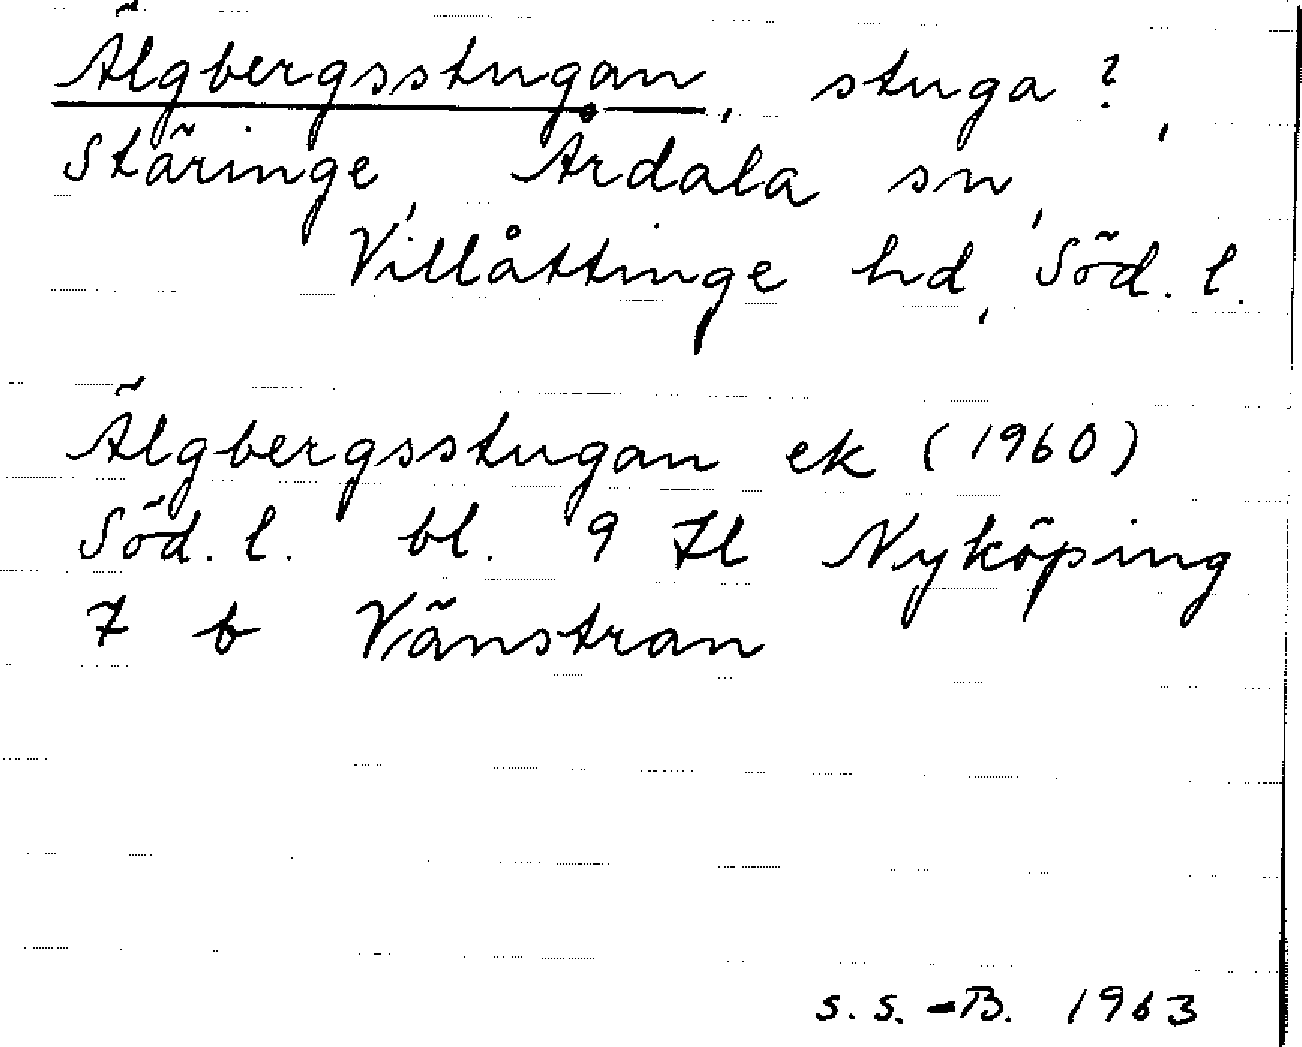 Älgbergsstugan, stuga?,
Stäringe, Årdala sn,
Villåttinge hd, Söd. l.
Älgbergsstugan ek (1960)
Söd. l. bl. 9 H Nyköping
7 b Vänstran
S. S. -B. 1963